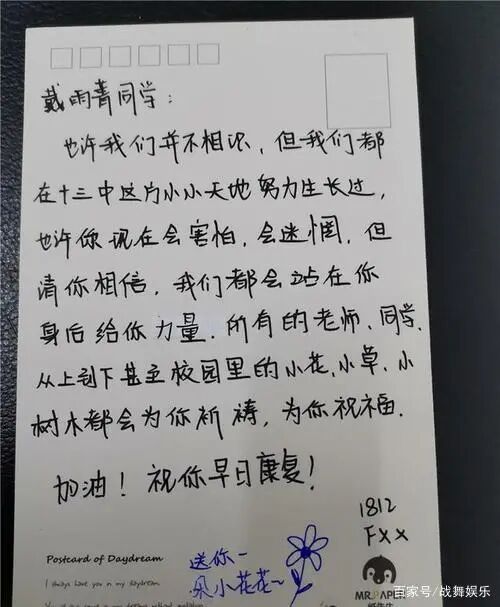 戴雨菁同学:
也许我们并不相识,但我们都
在十三中这方小小天地努力生长过,
也许你现在会害怕,会迷惘,但
请你相信,我们都会站在你
身后给你力量.所有的老师、同学,
从上到下甚至校园里的小花、小草、小
树木都会为你祈祷,为你祝福.
加油!祝你早日康复!
1812
FXX
送你一
朵小花花~
Postcard of Daydream
I always have you n my daydream.
MR.PAPER
百家号/战舞娱乐